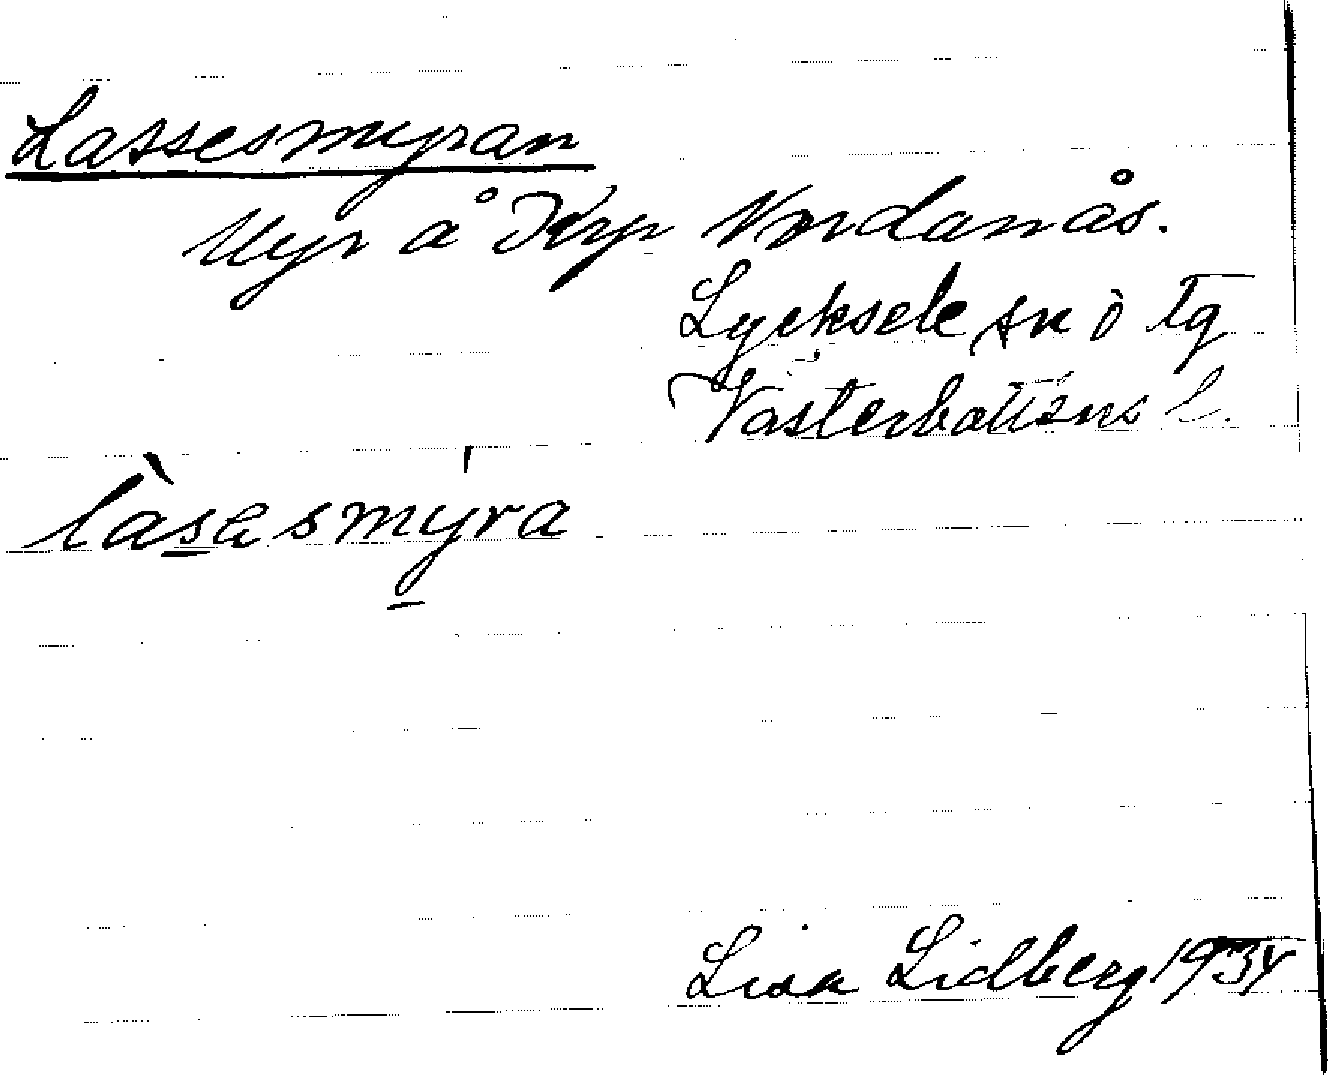 Lassesmyran
Myr å Krp Nordanås.
Lycksele sn o tg
Västerbottens l.
làsasmýra
Lisa Lidberg 1934